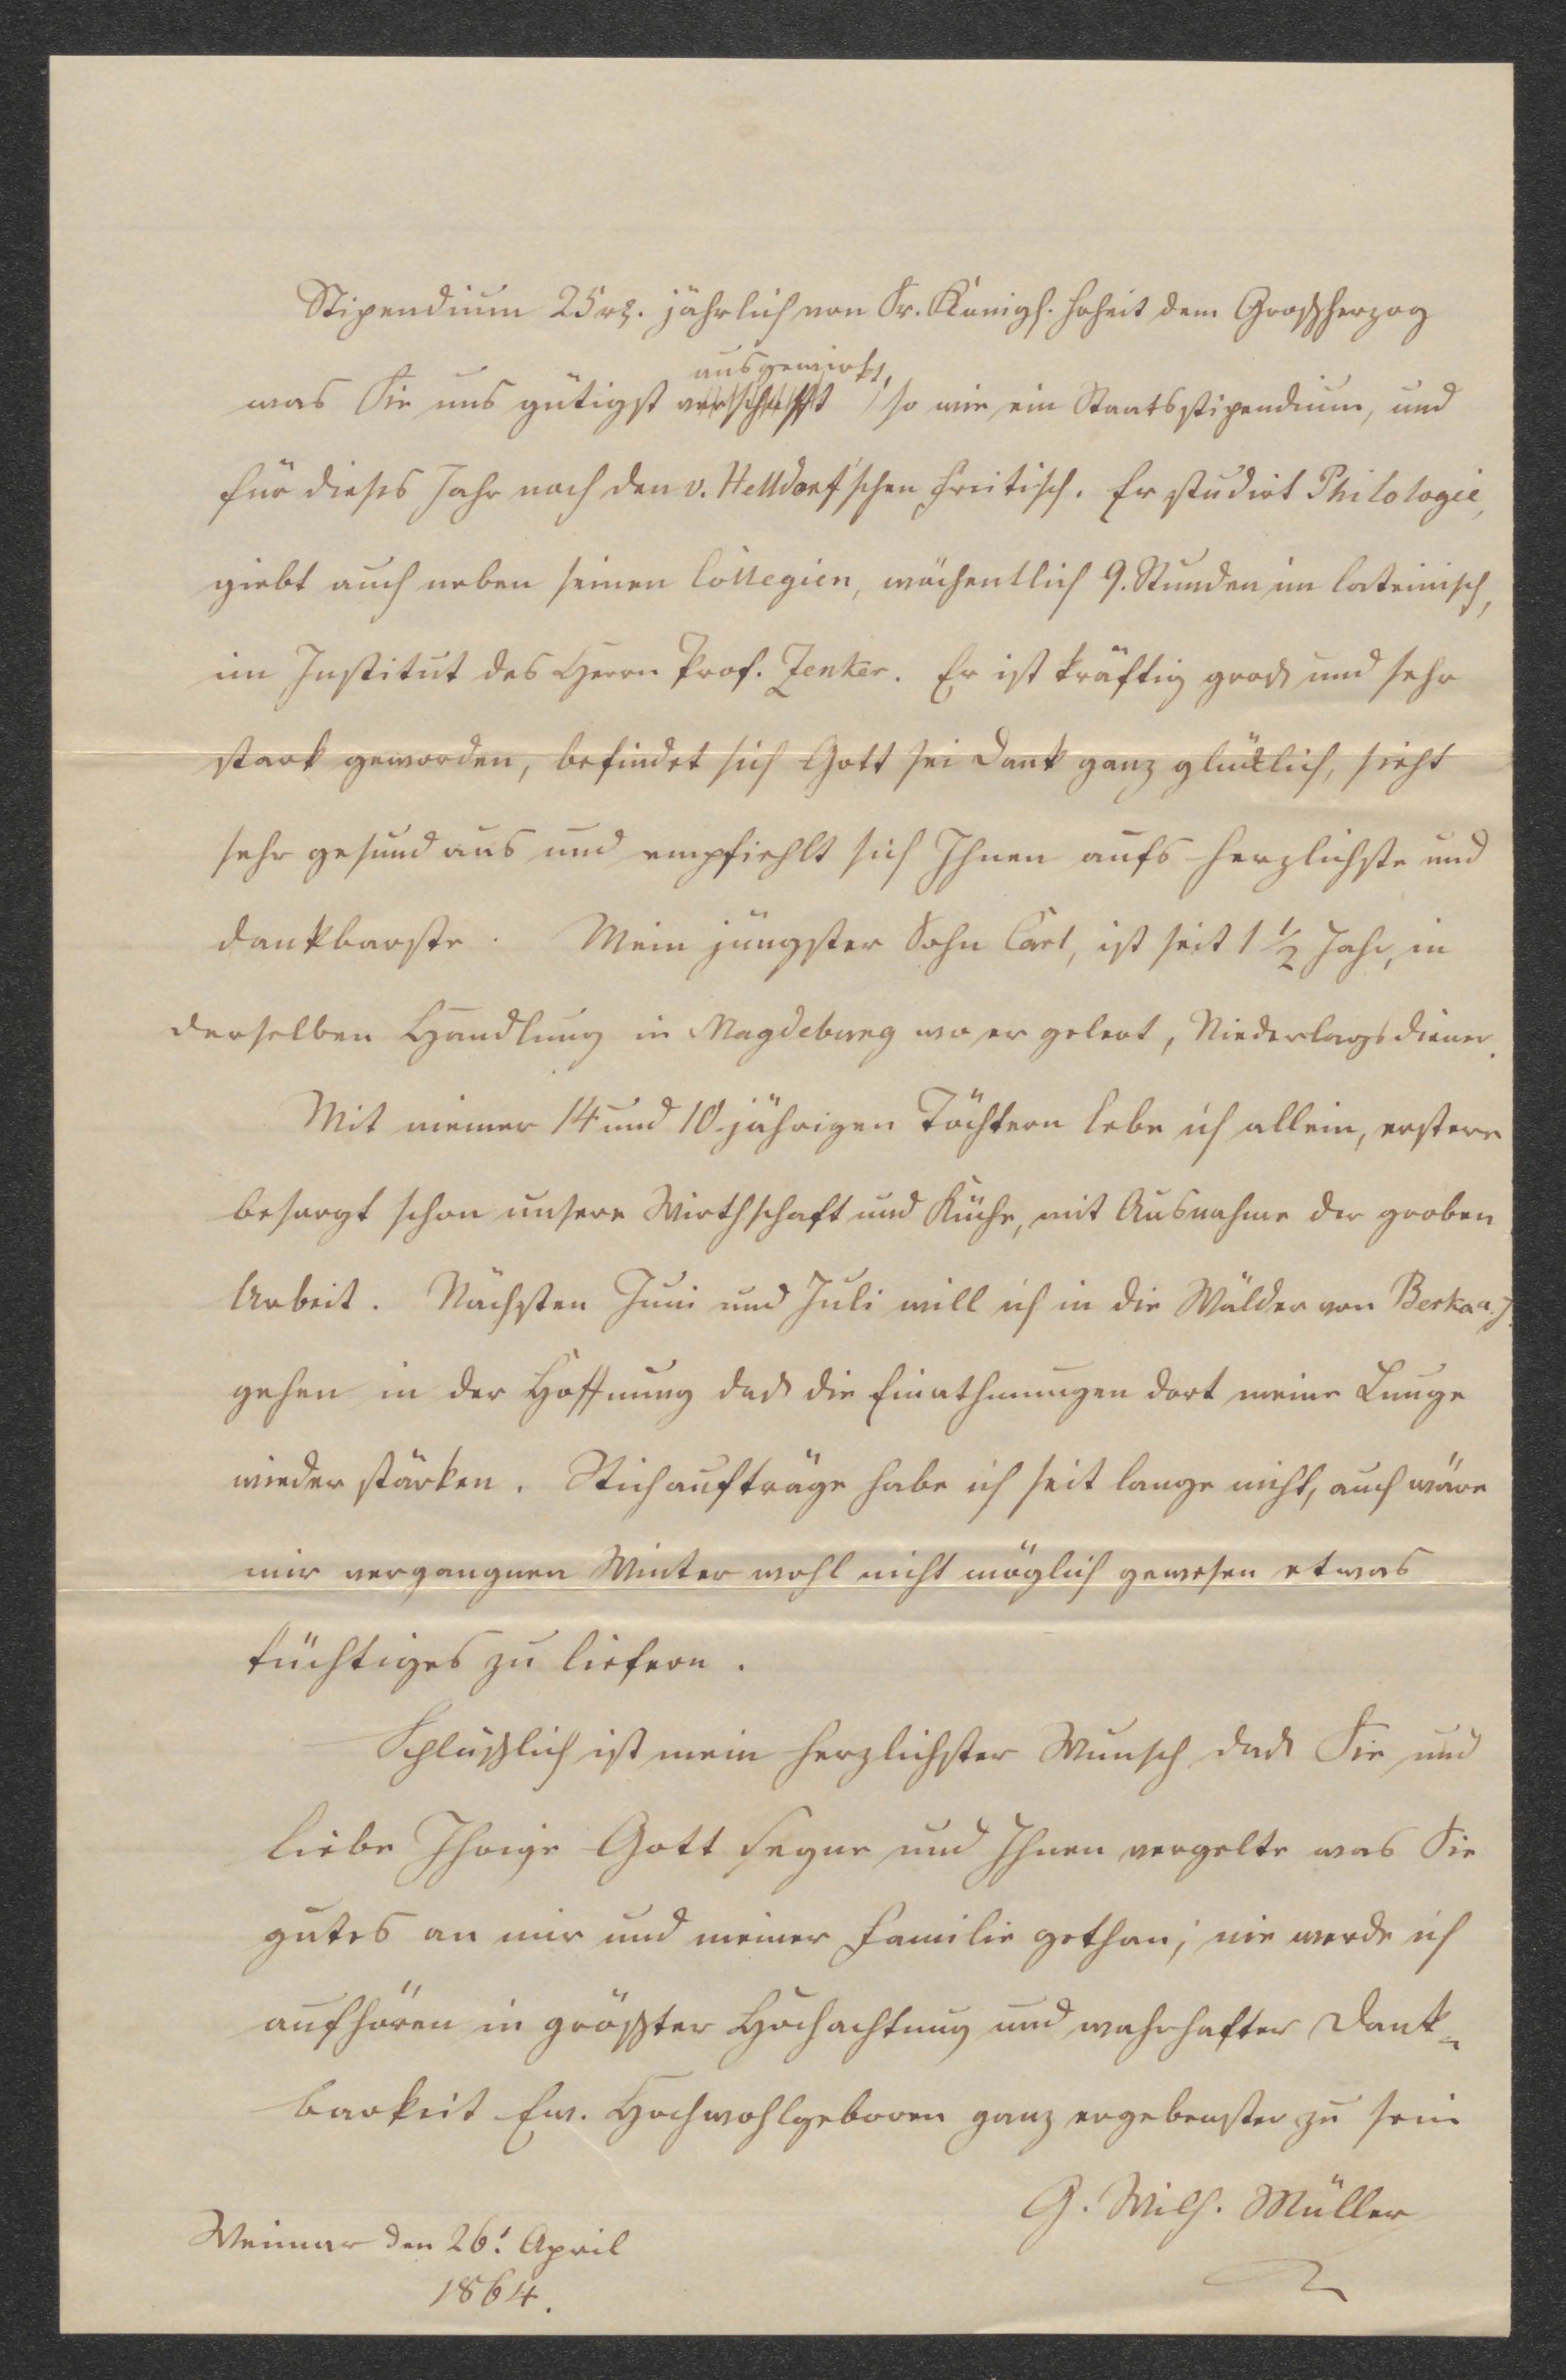 Stipendium 25 rℓ. jährlich von Sr. Königl. Hoheit dem Großherzog
ausgewirkt,
was Sie uns gütigst verschafft so wie ein Staatsstipendium, und
für dieses Jahr noch den v. Helldorf'schen Freitisch. Er studirt Philologie,
giebt auch neben seinen Collegien, wöchentlich 9. Stunden im lateinisch,
im Institut des Herrn Prof. Zenker. Er ist kräftig groß und sehr
stark geworden, befindet sich Gott sei Dank ganz glücklich, sieht
sehr gesund aus und empfiehlt sich Ihnen aufs herzlichste und
dankbarste. Mein jüngster Sohn Carl, ist seit 1 1/2 Jahr, in
derselben Handlung in Magdeburg wo er gelernt, Niederlagsdiener.
Mit meiner 14 und 10 jährigen Töchtern lebe ich allein, erstere
besorgt schon unsere Wirthschaft und Küche, mit Ausnahme der groben
Arbeit. Nächsten Juni und Juli will ich in die Wälder von Berka a. J.
gehen in der Hoffnung daß die Einathmungen dort meine Lunge
wieder stärken. Stichaufträge habe ich seit lange nicht, auch wäre
mir vergangnen Winter wohl nicht möglich gewesen etwas
tüchtiges zu liefern.
Schlüßlich ist mein herzlichster Wunsch daß Sie und
liebe Ihrige Gott segne und Ihnen vergelte was Sie
gutes an mir und meiner Familie gethan; nie werde ich
aufhören in größter Hochachtung und wahrhafter Dank-
barkeit Ew. Hochwohlgeboren ganz ergebenster zu sein
G. Wilh. Müller
Weimar den 26. April
1864.